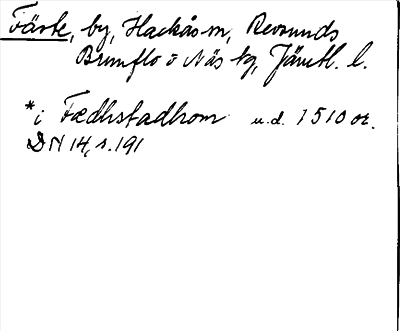 Fäste, by, Hackås sn, Revsunds
Brunflo o Näs tg, Jämtl. l.
* i Fædhstadhom u.d. 1510 or.
DN 14, s. 191